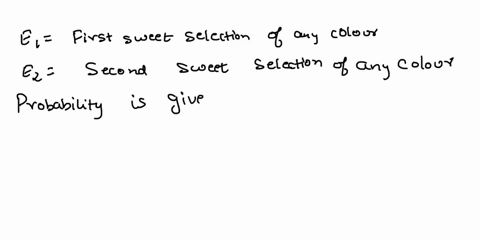 E₁= First sweet selection of any colour
E₂= Second sweet selection of any colour
Probability is give